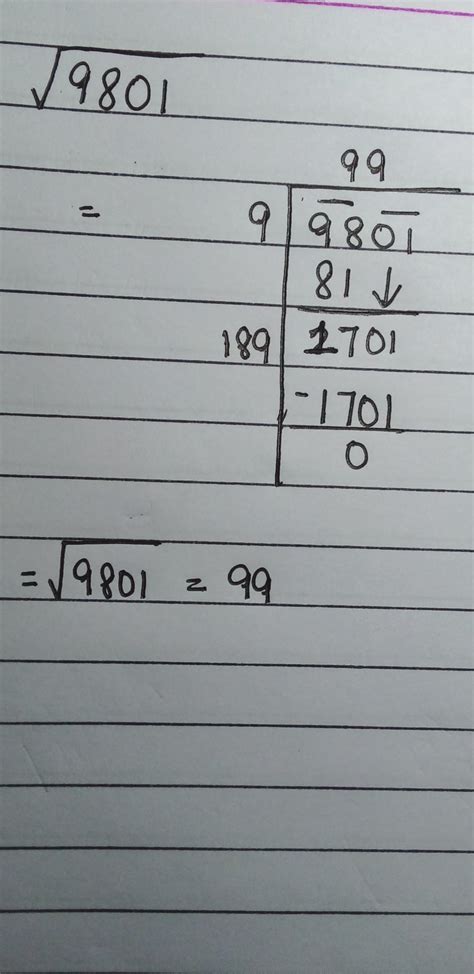 √9801
99
= 9 9801
81 ↓
189 1701
-1701
0
= √9801 = 99